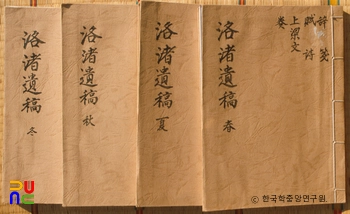 辞 箋
賦 詩
上梁文
卷
洛渚遺稿 春
洛渚遺稿 夏
洛渚遺稿 秋
洛渚遺稿 冬
ⓒ 한국학중앙연구원